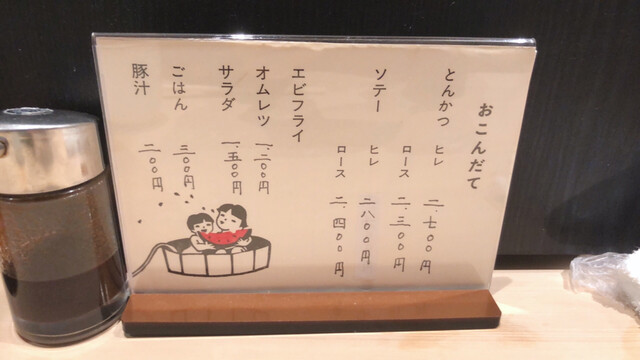 おこんだて
とんかつ ヒレ 二.七〇〇円
ロース 二.三〇〇円
ソテー ヒレ 二八〇〇円
ロース 二.四〇〇円
エビフライ
オムレツ 一.三〇〇円
サラダ 一.五〇〇円
ごはん 三〇〇円
豚汁 二〇〇円